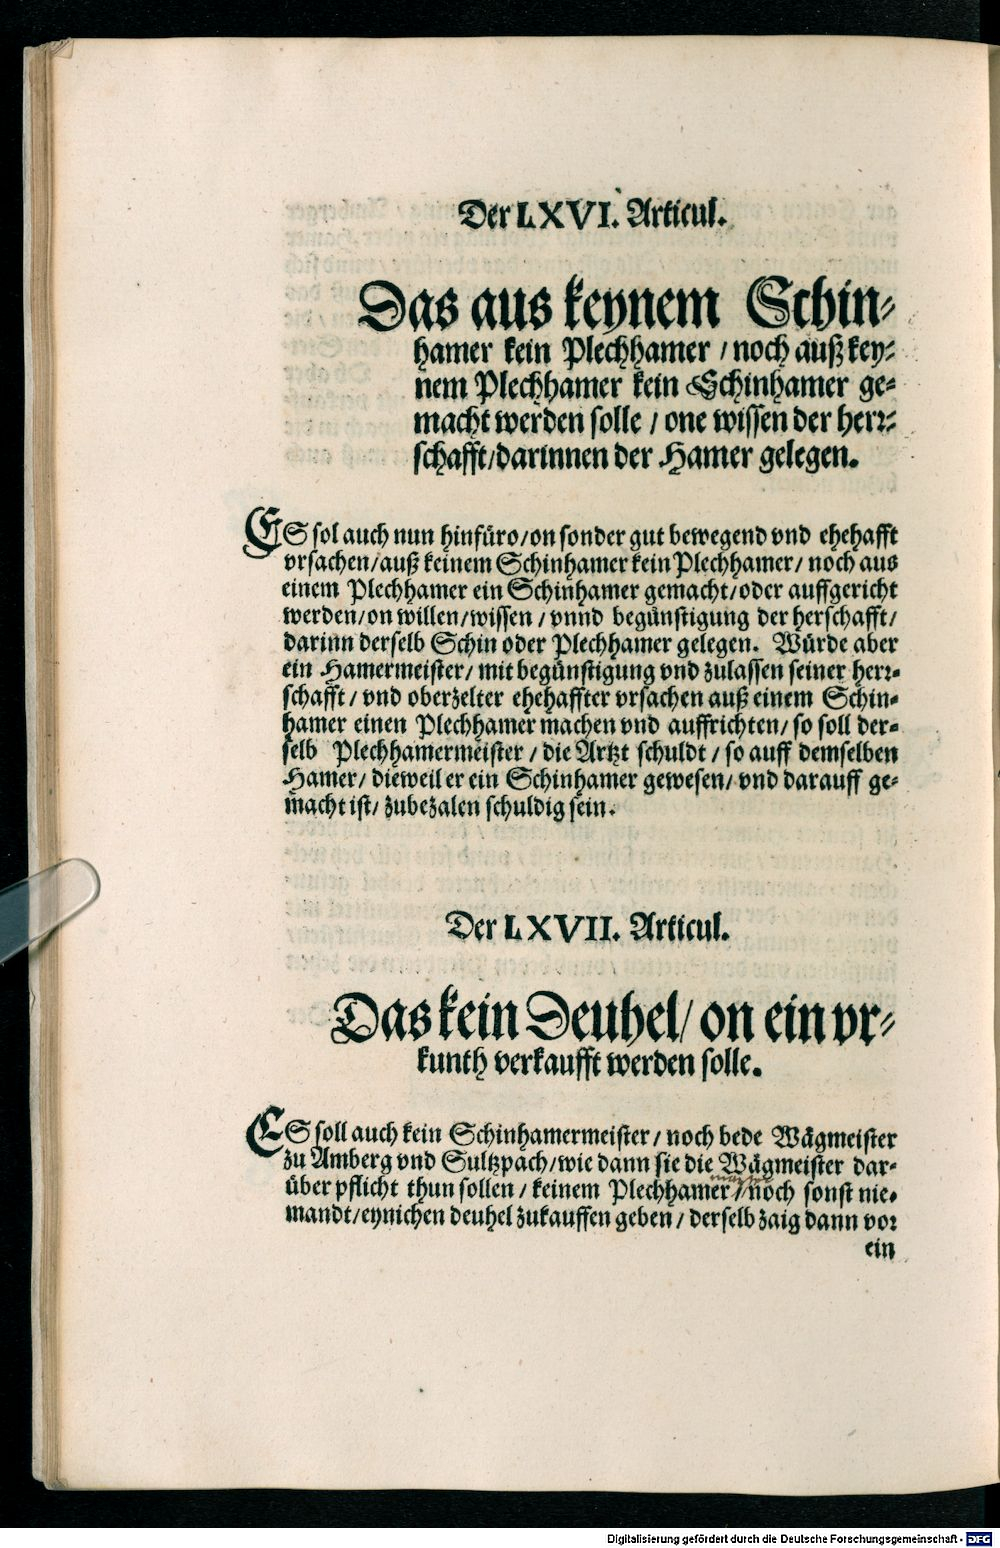 Der LXVI. Articul.
Das aus keynem Schin-
hamer kein Plechhamer / noch auß key-
nem Plechhamer kein Schinhamer ge-
macht werden solle / one wissen der herr-
schafft/darinnen der Hamer gelegen.
ES sol auch nun hinfüro/on sonder gut bewegend vnd ehehafft
vrsachen/auß keinem Schinhamer kein Plechhamer/ noch aus
einem Plechhamer ein Schinhamer gemacht/oder auffgericht
werden/on willen/wissen / vnnd begünstigung der herschafft/
darinn derselb Schin oder Plechhamer gelegen. Würde aber
ein Hamermeister/ mit begünstigung vnd zulassen seiner herr-
schafft/ vnd oberzelter ehehaffter vrsachen auß einem Schin-
hamer einen Plechhamer machen vnd auffrichten/ so soll der-
selb Plechhamermeister / die Artzt schuldt / so auff demselben
Hamer/ dieweil er ein Schinhamer gewesen/ vnd darauff ge-
macht ist/ zubezalen schuldig sein.
Der LXVII. Articul.
Das kein Deuhel/ on ein vr-
kunth verkaufft werden solle.
ES soll auch kein Schinhamermeister/ noch bede Wägmeister
zu Amberg vnd Sultzpach/wie dann sie die Wägmeister dar-
über pflicht thun sollen/ keinem Plechhamer / noch sonst nie-
mandt/eynichen deuhel zukauffen geben/ derselb zaig dann vor
ein
Digitalisierung gefördert durch die Deutsche Forschungsgemeinschaft - DFG